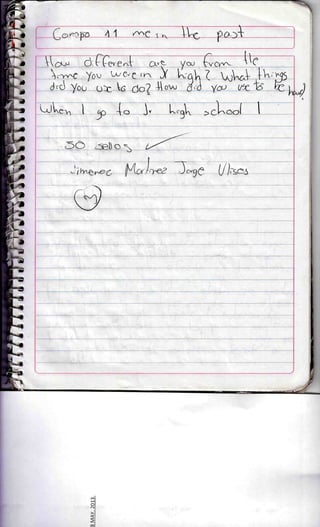 Compo 11 me in the past
How different are you from the
time you were in Jr high? What things
did you use to do? How did you use to be
When I go to Jr high school I
50 sellos
Jimenez Martinez Jorge Ulises
8 MAY. 2013